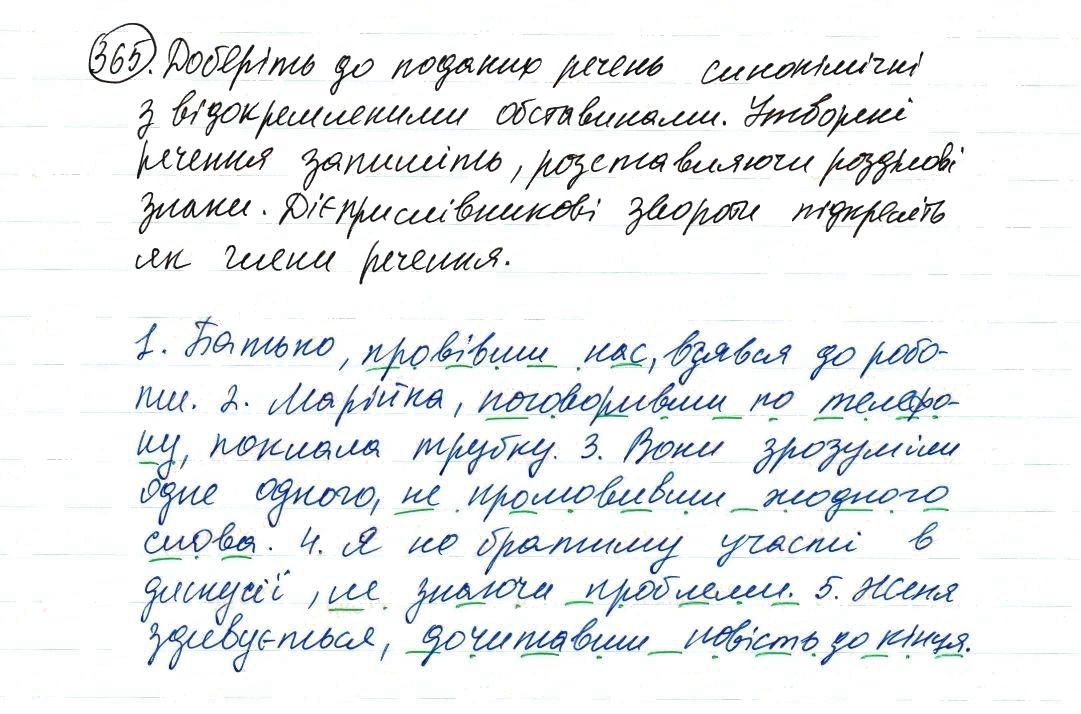 365. Доберіть до поданих речень синонімічні
з відокремленими обставинами. Утворені
речення запишіть, розставляючи розділові
знаки. Дієприслівникові звороти підкресліть
як члени речення.
1. Батько, провівши нас, взявся до робо-
ти. 2. Марійка, поговоривши по телефо-
ну, поклала трубку. 3. Вони зрозуміли
одне одного, не промовивши жодного
слова. 4. Я не братиму участі в
дискусії, не знаючи проблеми. 5. Женя
здивується, дочитавши повість до кінця.